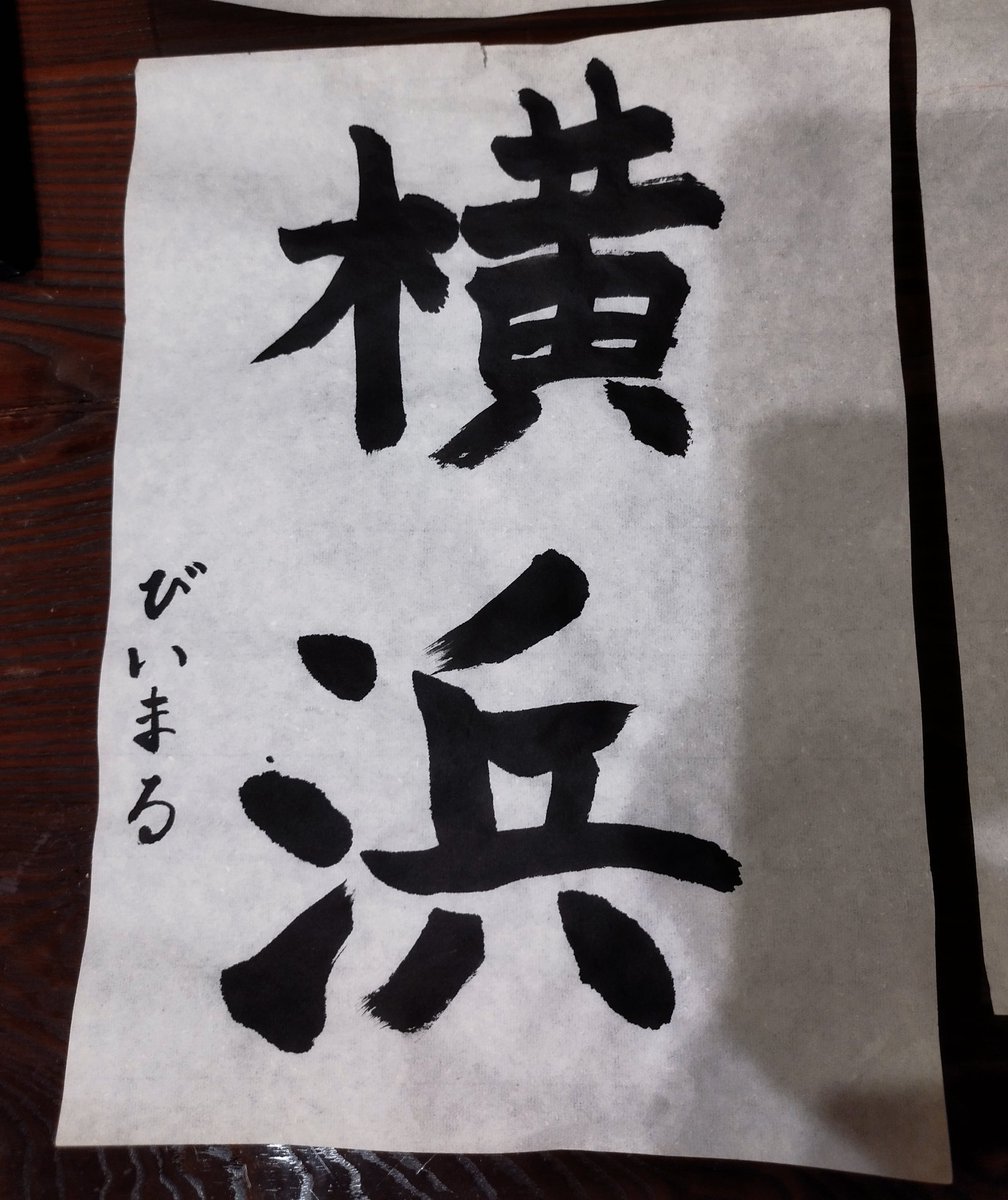 横浜
びいまる